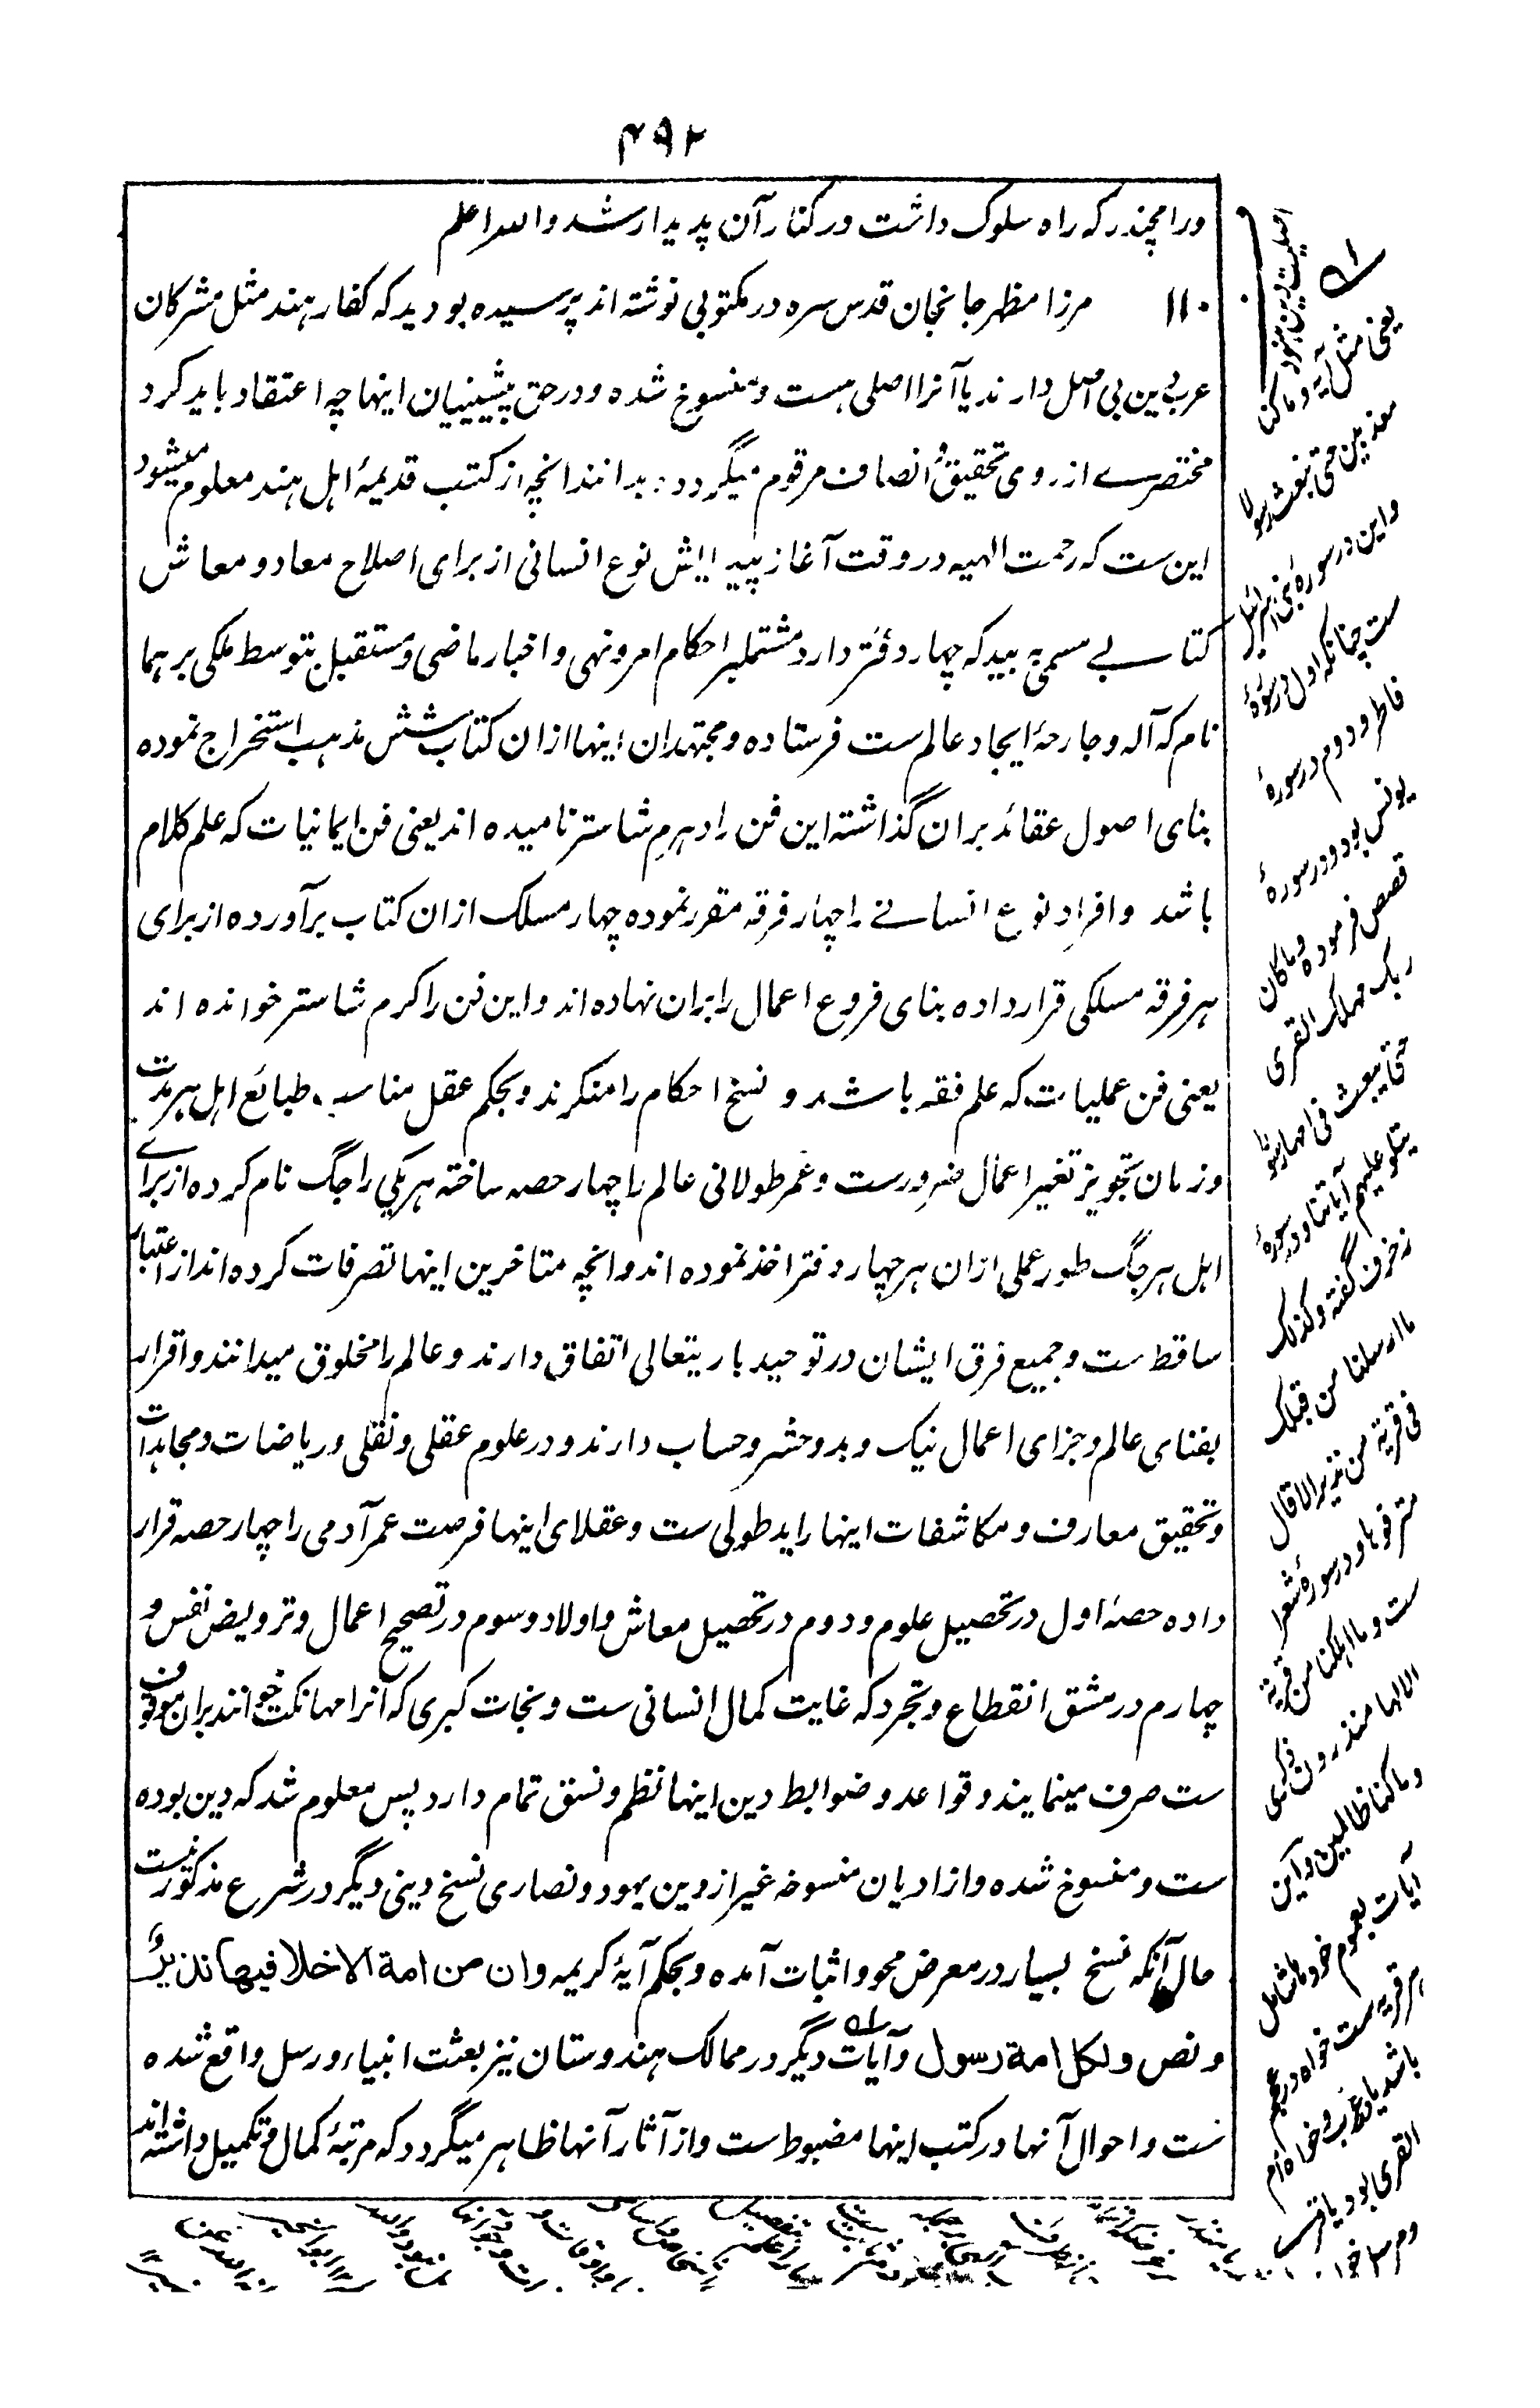 ۴۹۲
ورامچندر که راه سلوک داشت در کنار آن پدیدار شد والله اعلم
۱۱۰ مرزا مظهر جانجان قدس سره در مکتوبی نوشته اند پرسیده بودید که کفار هند مثل مشرکان
عرب دین بی اصل دارند یا آنرا اصلی هست و منسوخ شده و در حق پیشینیان اینها چه اعتقاد باید کرد
مختصرے از روی تحقیق و انصاف مرقوم میگردد بدانند انچه از کتب قدیمۀ اهل هند معلوم میشود
این ست که رحمت الهیه در وقت آغاز پیدایش نوع انسانی از برای اصلاح معاد و معاش
کتابے مسمی به بید که چهار دفتر دارد مشتملبر احکام امر و نهی و اخبار ماضی و مستقبل بتوسط ملکی برهما
نام که آله و جارحۀ ایجاد عالم ست فرستاده و مجتهدان اینها ازان کتاب شش مذهب استخراج نموده
بنای اصول عقائد بران گذاشته این فن را دهرم شاستر نامیده اند یعنی فن ایمانیات که علم کلام
باشد و افراد نوع انسانے را چهار فرقه مقرر نموده چهار مسلک ازان کتاب برآورده از برای
هر فرقه مسلکی قرار داده بنای فروع اعمال را بران نهاده اند و این فن را کرم شاستر خوانده اند
یعنی فن عملیات که علم فقه باشد و نسخ احکام را منکرند و بحکم عقل مناسب طبائع اهل هر مدت
و زمان تجویز تغیر اعمال ضرورست و عمر طولانی عالم را چهار حصه ساخته هر یکی را جگ نام کرده از براے
اهل هر جگ طور عملی ازان هر چهار دفتر اخذ نموده اند و انچه متاخرین اینها تصرفات کرده اند از اعتبار
ساقط ست و جمیع فرق ایشان در توحید باریتعالی اتفاق دارند و عالم را مخلوق میدانند و اقرار
بفنای عالم و جزای اعمال نیک و بد و حشر و حساب دارند و در علوم عقلی و نقلی و ریاضات و مجاهدات
و تحقیق معارف و مکاشفات اینها را ید طولی ست و عقلای اینها فرصت عمر آدمی را چهار حصه قرار
داده حصۀ اول در تحصیل علوم و دوم در تحصیل معاش و اولاد و سوم در تصحیح اعمال و ترویض نفس و
چهارم در مشق انقطاع و تجرد که غایت کمال انسانی ست و نجات کبری که آنرا مهامکت خوانند بران موقوف
ست صرف مینمایند و قواعد و ضوابط دین اینها نظم و نسق تمام دارد پس معلوم شد که دین بوده
ست و منسوخ شده و از ادیان منسوخه غیر از دین یهود و نصاری نسخ دینی دیگر در شرع مذکور نیست
حال آنکه نسخ بسیار در معرض محو و اثبات آمده و بحکم آیۀ کریمه وان من امة الا خلا فیها نذیرٌ و
و نص ولکل امة رسول و آیات دیگر در ممالک هندوستان نیز بعثت انبیاء و رسل واقع شده
ست و احوال آنها در کتب اینها مضبوط ست و از آثار آنها ظاهر میگردد که مرتبۀ کمال و تکمیل داشته اند
اصلیت دین هنود
یعنی مثل آیه وما کنا
معذبین حتی نبعث رسولا
و این در سورۀ بنی اسرائیل
ست چنانکه اول در سورۀ
فاطر و دوم در سورۀ
یونس بود و در سورۀ
قصص فرموده وما کان
ربک مهلک القری
حتی یبعث فی امها رسولا
یتلو علیهم آیاتنا و در سورۀ
زخرف گفته وکذلک
ما ارسلنا من قبلک
فی قریة من نذیر الا قال
مترفوها و در سورۀ شعرا
ست وما اهلکنا من قریة
الا لها منذرون ذکری
وما کنا ظالمین و این
آیات بعموم خود شامل
هر قریه ست خواه در عجم
باشد یا عرب و خواه ام
القری بود یا قریه